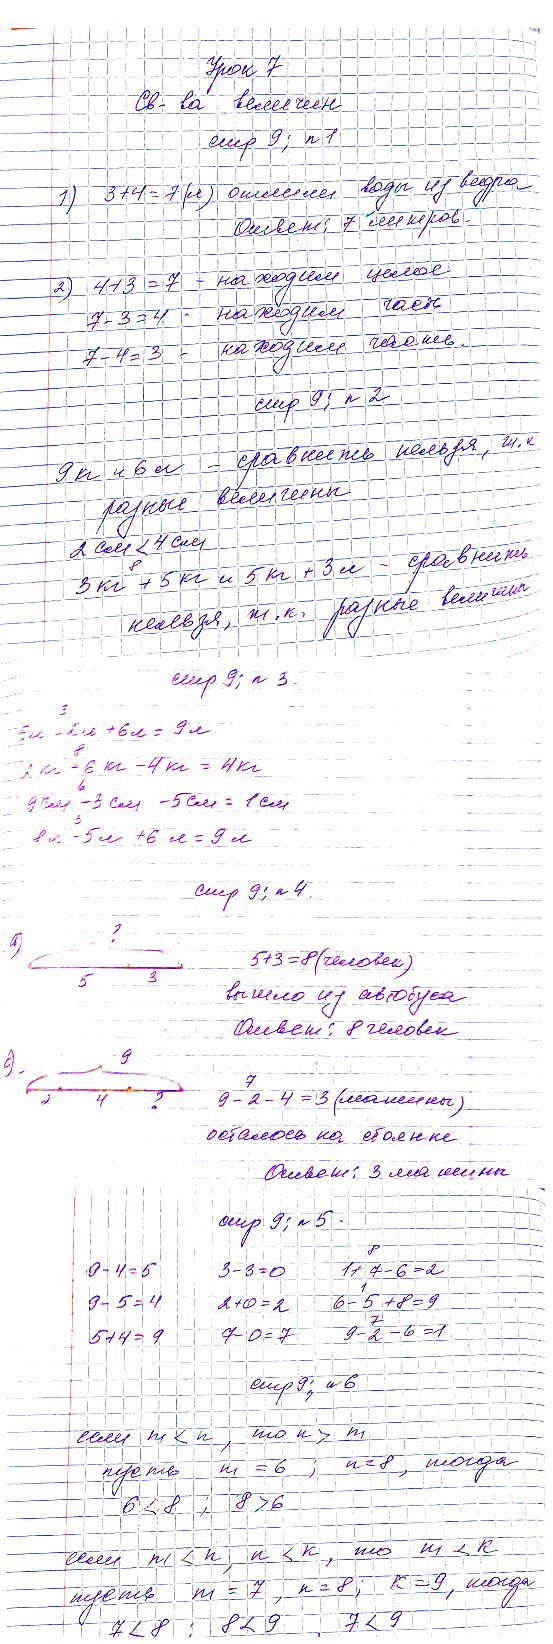 Урок 7
Св-ва величин
стр 9; n 1
1) 3+4=7(л) отлили воды из ведра
Ответ: 7 литров.
2) 4+3=7 - находим целое
7-3=4 - находим часть
7-4=3 - находим часть.
стр 9; n 2
9кг и 6л - сравнить нельзя, т.к
разные величины
2см<4см
8
3кг+5кг и 5кг+3л - сравнить
нельзя, т.к. разные величины
стр 9; n 3.
3
5л-2л+6л=9л
8
2кг+6кг-4кг=4кг
6
9см-3см-5см=1см
3
8л-5л+6л=9л
стр 9; n 4.
а)
?
5 3
5+3=8(человек)
вышло из автобуса
Ответ: 8 человек
б)
9
2 4 ?
7
9-2-4=3(машины)
осталось на стоянке
Ответ: 3 машины
стр 9; n 5.
8
9-4=5 3-3=0 1+7-6=2
1
9-5=4 2+0=2 6-5+8=9
7
5+4=9 7-0=7 9-2-6=1
стр 9; n 6
если m<n, то n>m
пусть m=6; n=8, тогда
6<8; 8>6
если m<n, n<k, то m<k
пусть m=7, n=8; k=9, тогда
7<8; 8<9, 7<9